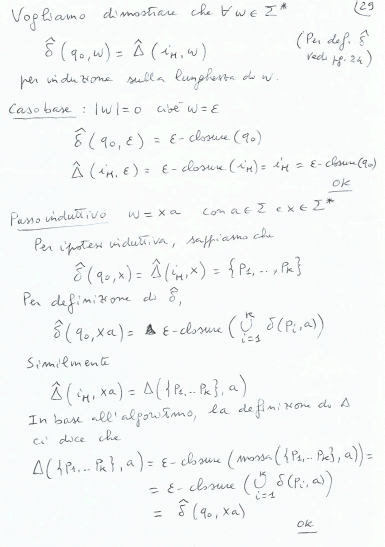 Vogliamo dimostrare che ∀ w ∈ Σ* (29
δ̂ (q₀, w) = Δ̂ (i_M, w) (Per def. δ̂
vedi pg. 24)
per induzione sulla lunghezza di w.
Caso base : |w| = 0 cioè w = ε
δ̂ (q₀, ε) = ε-closure (q₀)
Δ̂ (i_M, ε) = ε-closure (i_M) = i_M = ε-closure (q₀)
OK
Passo induttivo w = xa con a ∈ Σ e x ∈ Σ*
Per ipotesi induttiva, sappiamo che
δ̂ (q₀, x) = Δ̂ (i_M, x) = {P₁, .., Pₖ}
Per definizione di δ̂,
δ̂ (q₀, xa) = ε-closure (⋃ᵢ₌₁ᴷ δ(Pᵢ, a))
Similmente
Δ̂ (i_M, xa) = Δ ({P₁, .. Pₖ}, a)
In base all'algoritmo, la definizione di Δ
ci dice che
Δ ({P₁, .. Pₖ}, a) = ε-closure (mossa ({P₁, .. Pₖ}, a)) =
= ε-closure (⋃ᵢ₌₁ᴷ δ(Pᵢ, a))
= δ̂ (q₀, xa)
OK